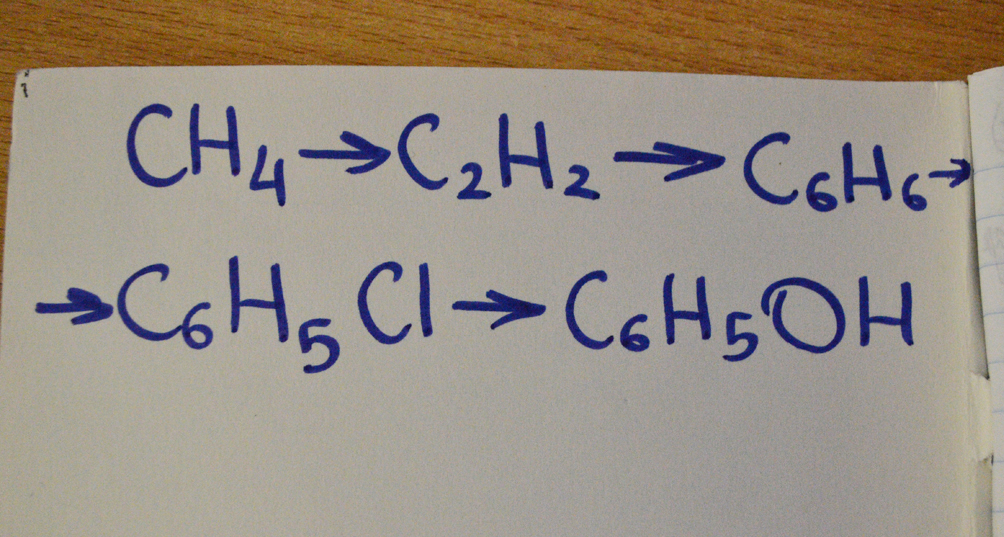 CH₄→C₂H₂→C₆H₆→
→C₆H₅Cl→C₆H₅OH